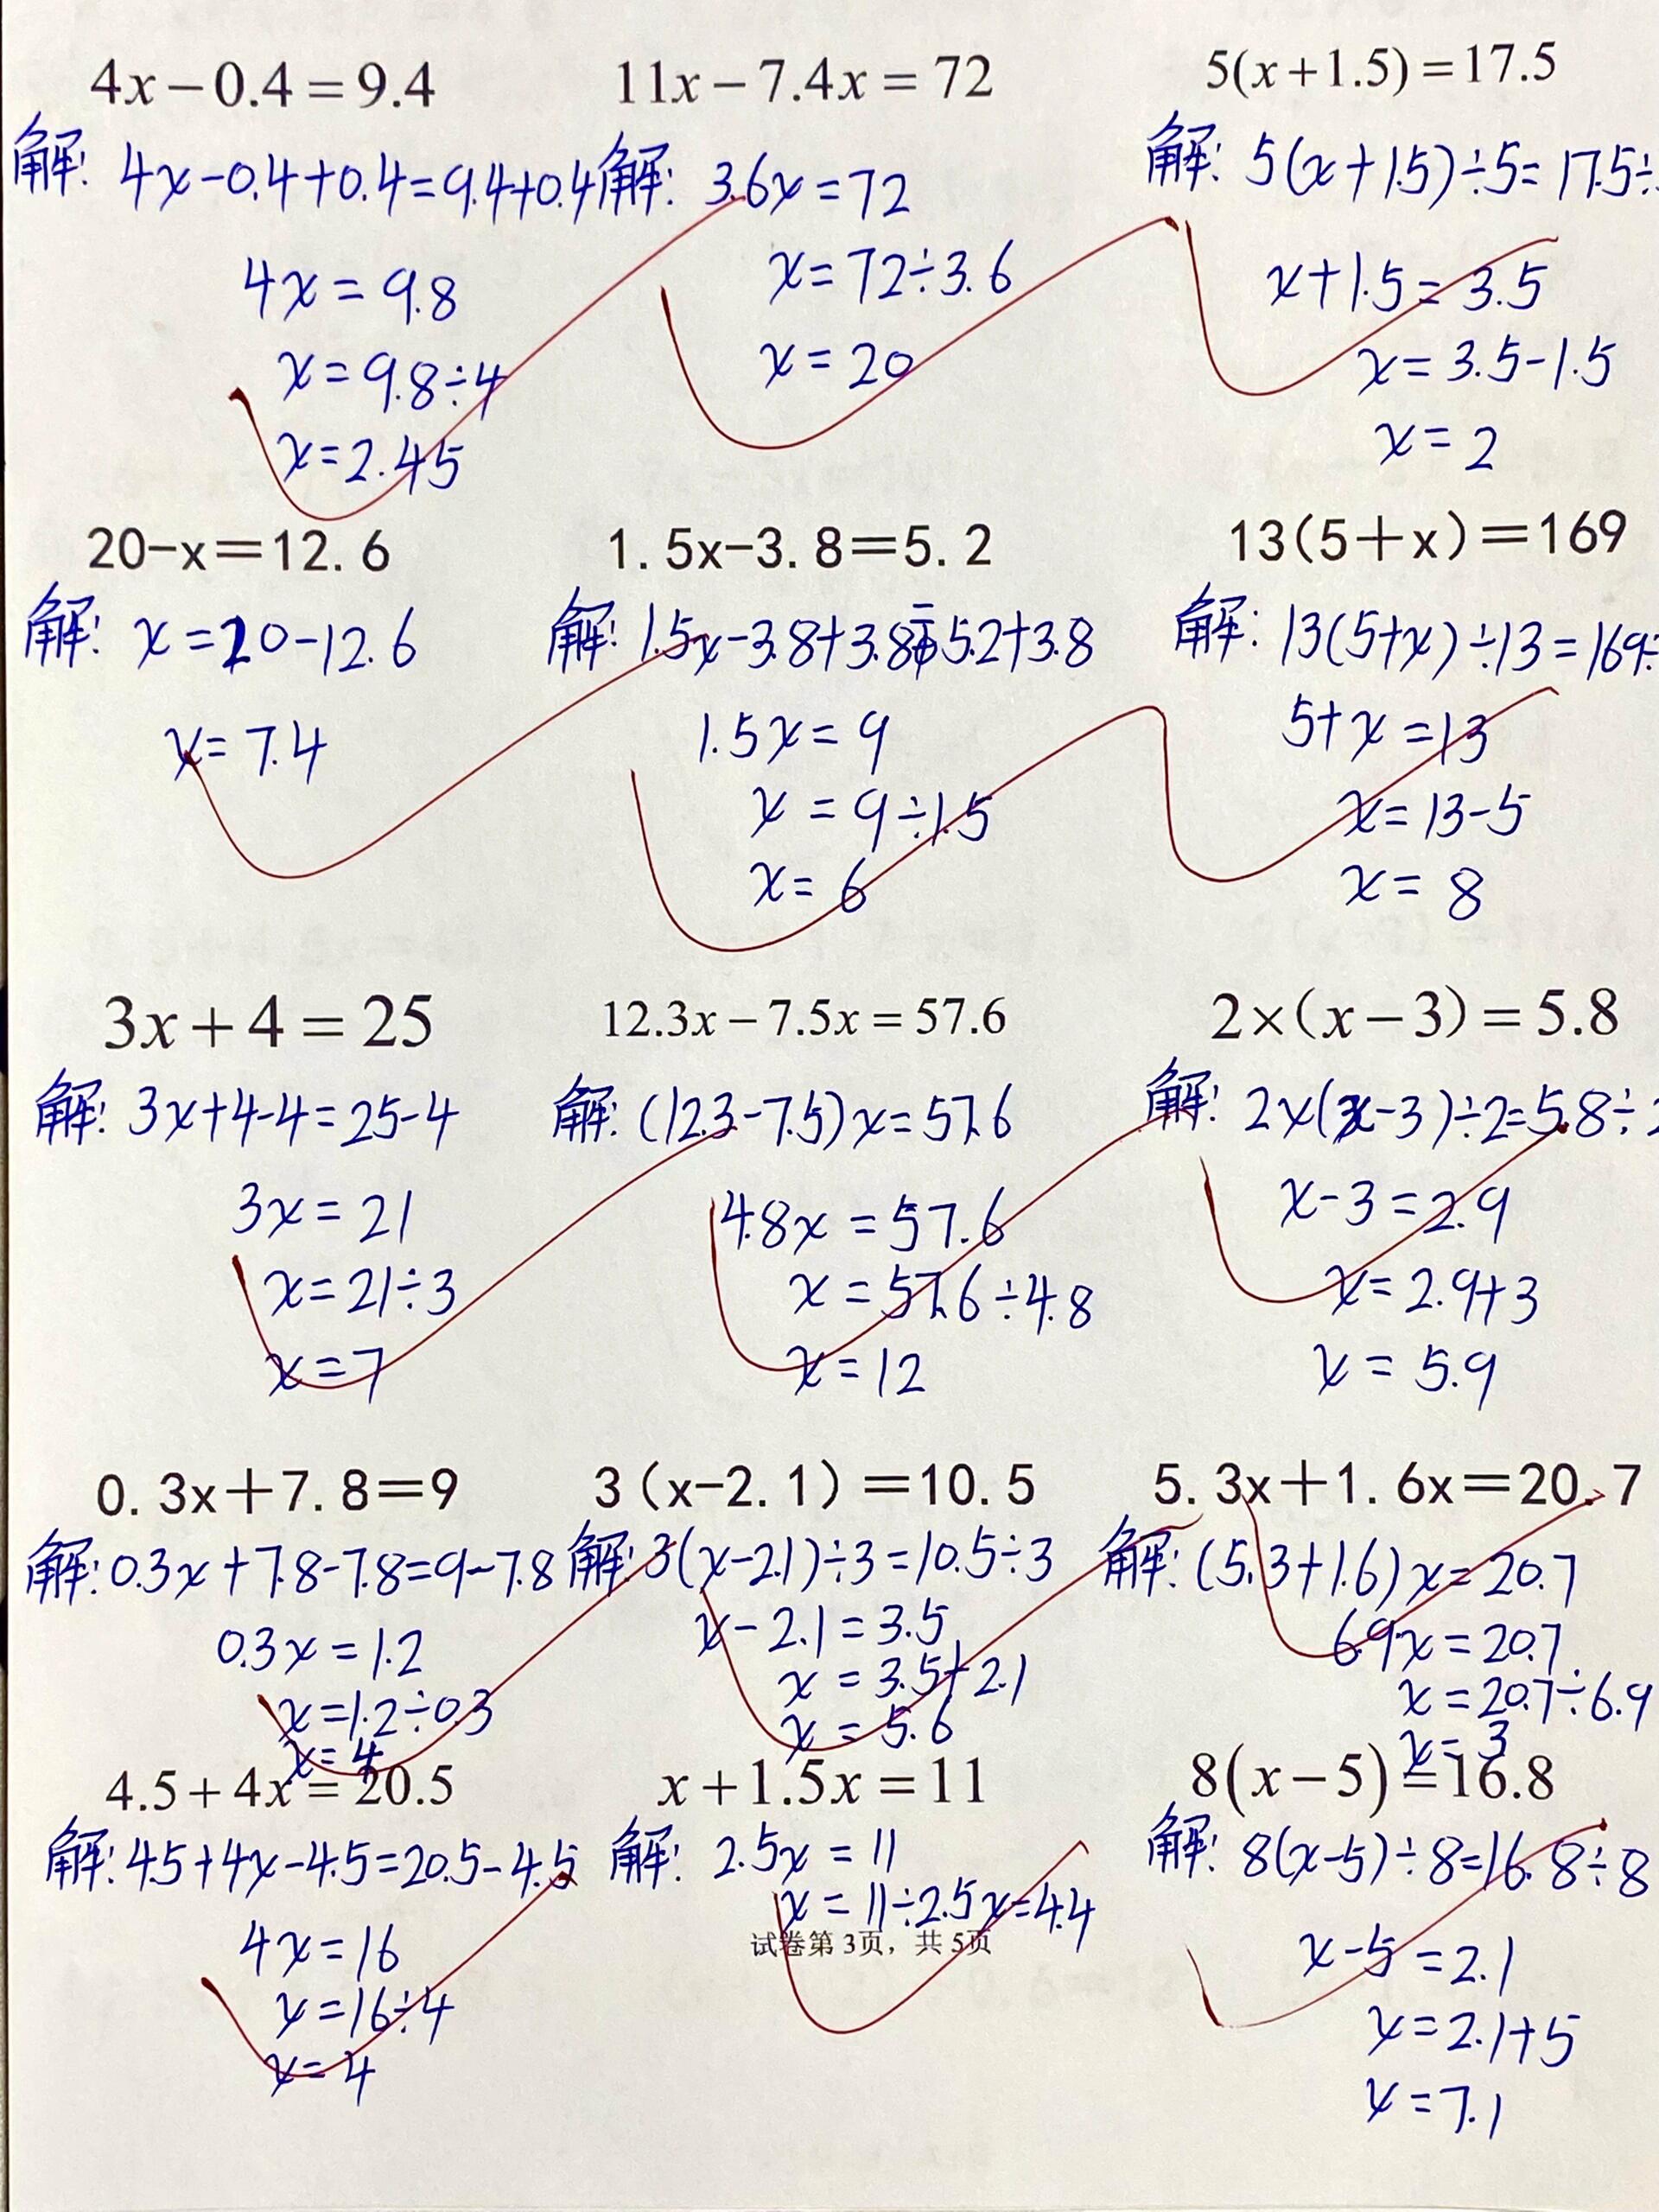 4x－0.4＝9.4
解: 4x-0.4+0.4=9.4+0.4
4x=9.8
x=9.8÷4
x=2.45
11x－7.4x＝72
解: 3.6x=72
x=72÷3.6
x=20
5(x+1.5)＝17.5
解: 5(x+1.5)÷5=17.5÷
x+1.5=3.5
x=3.5-1.5
x=2
20-x＝12.6
解: x=20-12.6
x=7.4
1.5x-3.8＝5.2
解: 1.5x-3.8+3.8=5.2+3.8
1.5x=9
x=9÷1.5
x=6
13(5＋x)＝169
解: 13(5+x)÷13=169÷
5+x=13
x=13-5
x=8
3x＋4＝25
解: 3x+4-4=25-4
3x=21
x=21÷3
x=7
12.3x－7.5x＝57.6
解: (12.3-7.5)x=57.6
4.8x=57.6
x=57.6÷4.8
x=12
2×(x－3)＝5.8
解: 2×(x-3)÷2=5.8÷2
x-3=2.9
x=2.9+3
x=5.9
0.3x＋7.8＝9
解: 0.3x+7.8-7.8=9-7.8
0.3x=1.2
x=1.2÷0.3
x=4
3(x-2.1)＝10.5
解: 3(x-2.1)÷3=10.5÷3
x-2.1=3.5
x=3.5+2.1
x=5.6
5.3x＋1.6x＝20.7
解: (5.3+1.6)x=20.7
6.9x=20.7
x=20.7÷6.9
x=3
4.5＋4x＝20.5
解: 4.5+4x-4.5=20.5-4.5
4x=16
x=16÷4
x=4
x＋1.5x＝11
解: 2.5x=11
x=11÷2.5 x=4.4
8(x－5)＝16.8
解: 8(x-5)÷8=16.8÷8
x-5=2.1
x=2.1+5
x=7.1
试卷第 3页，共 5页